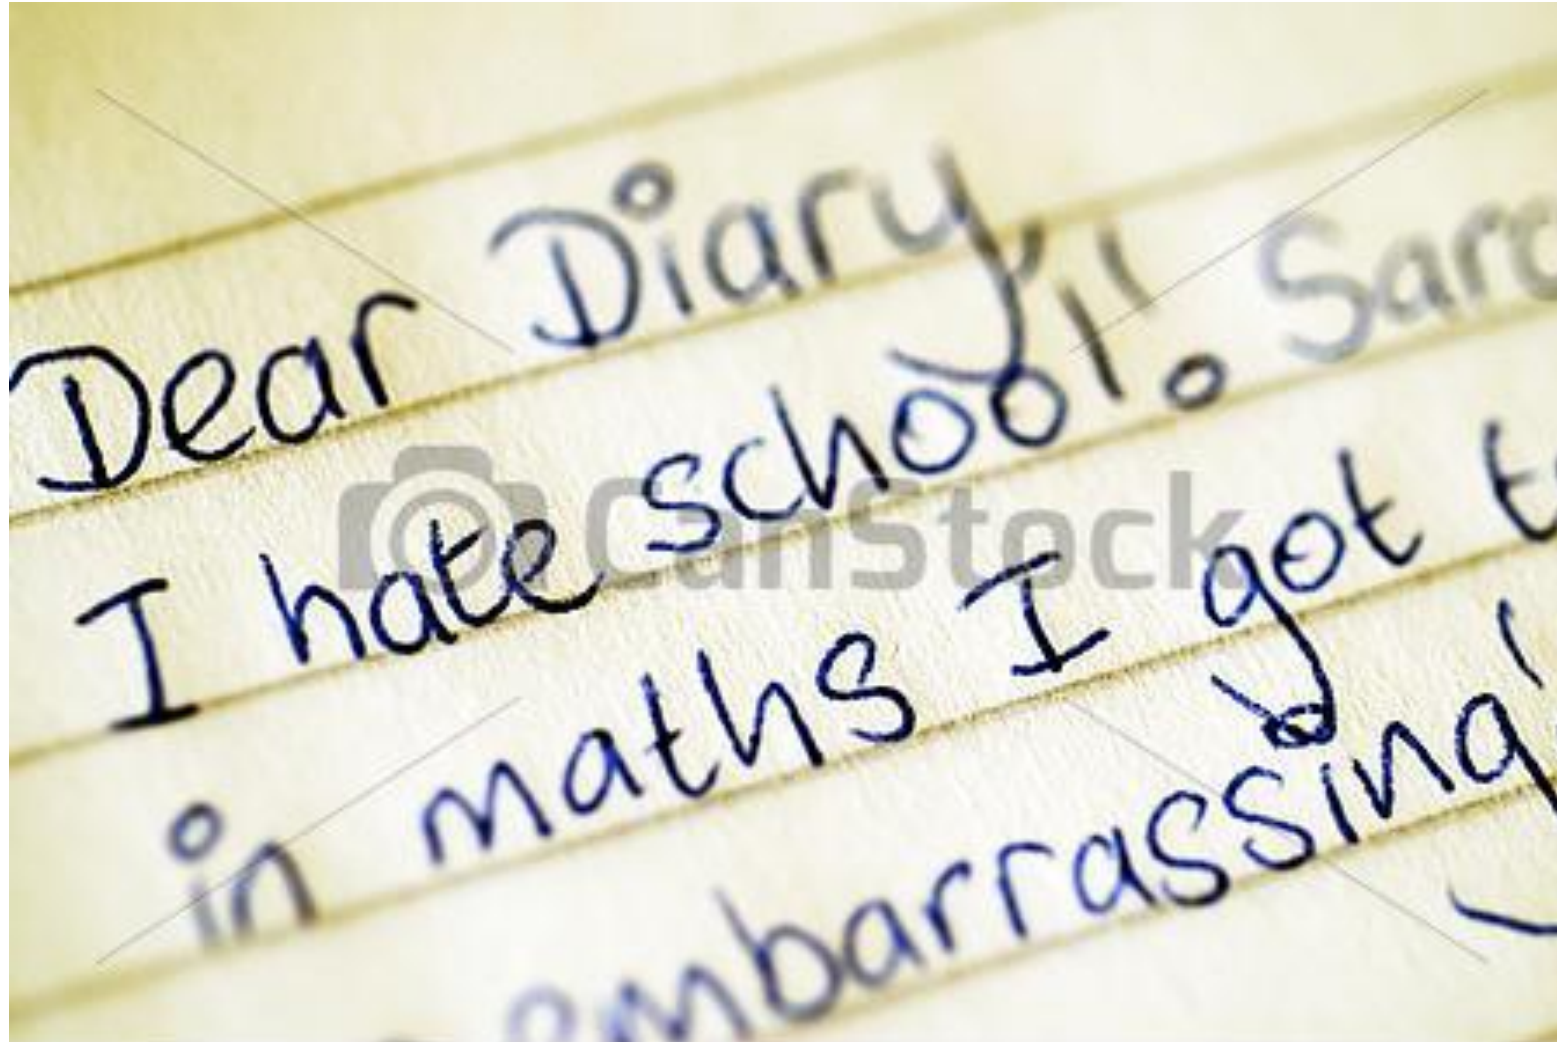 Dear Diary,
I hate school! Sarc
in maths I got t
embarrassing!
CanStock